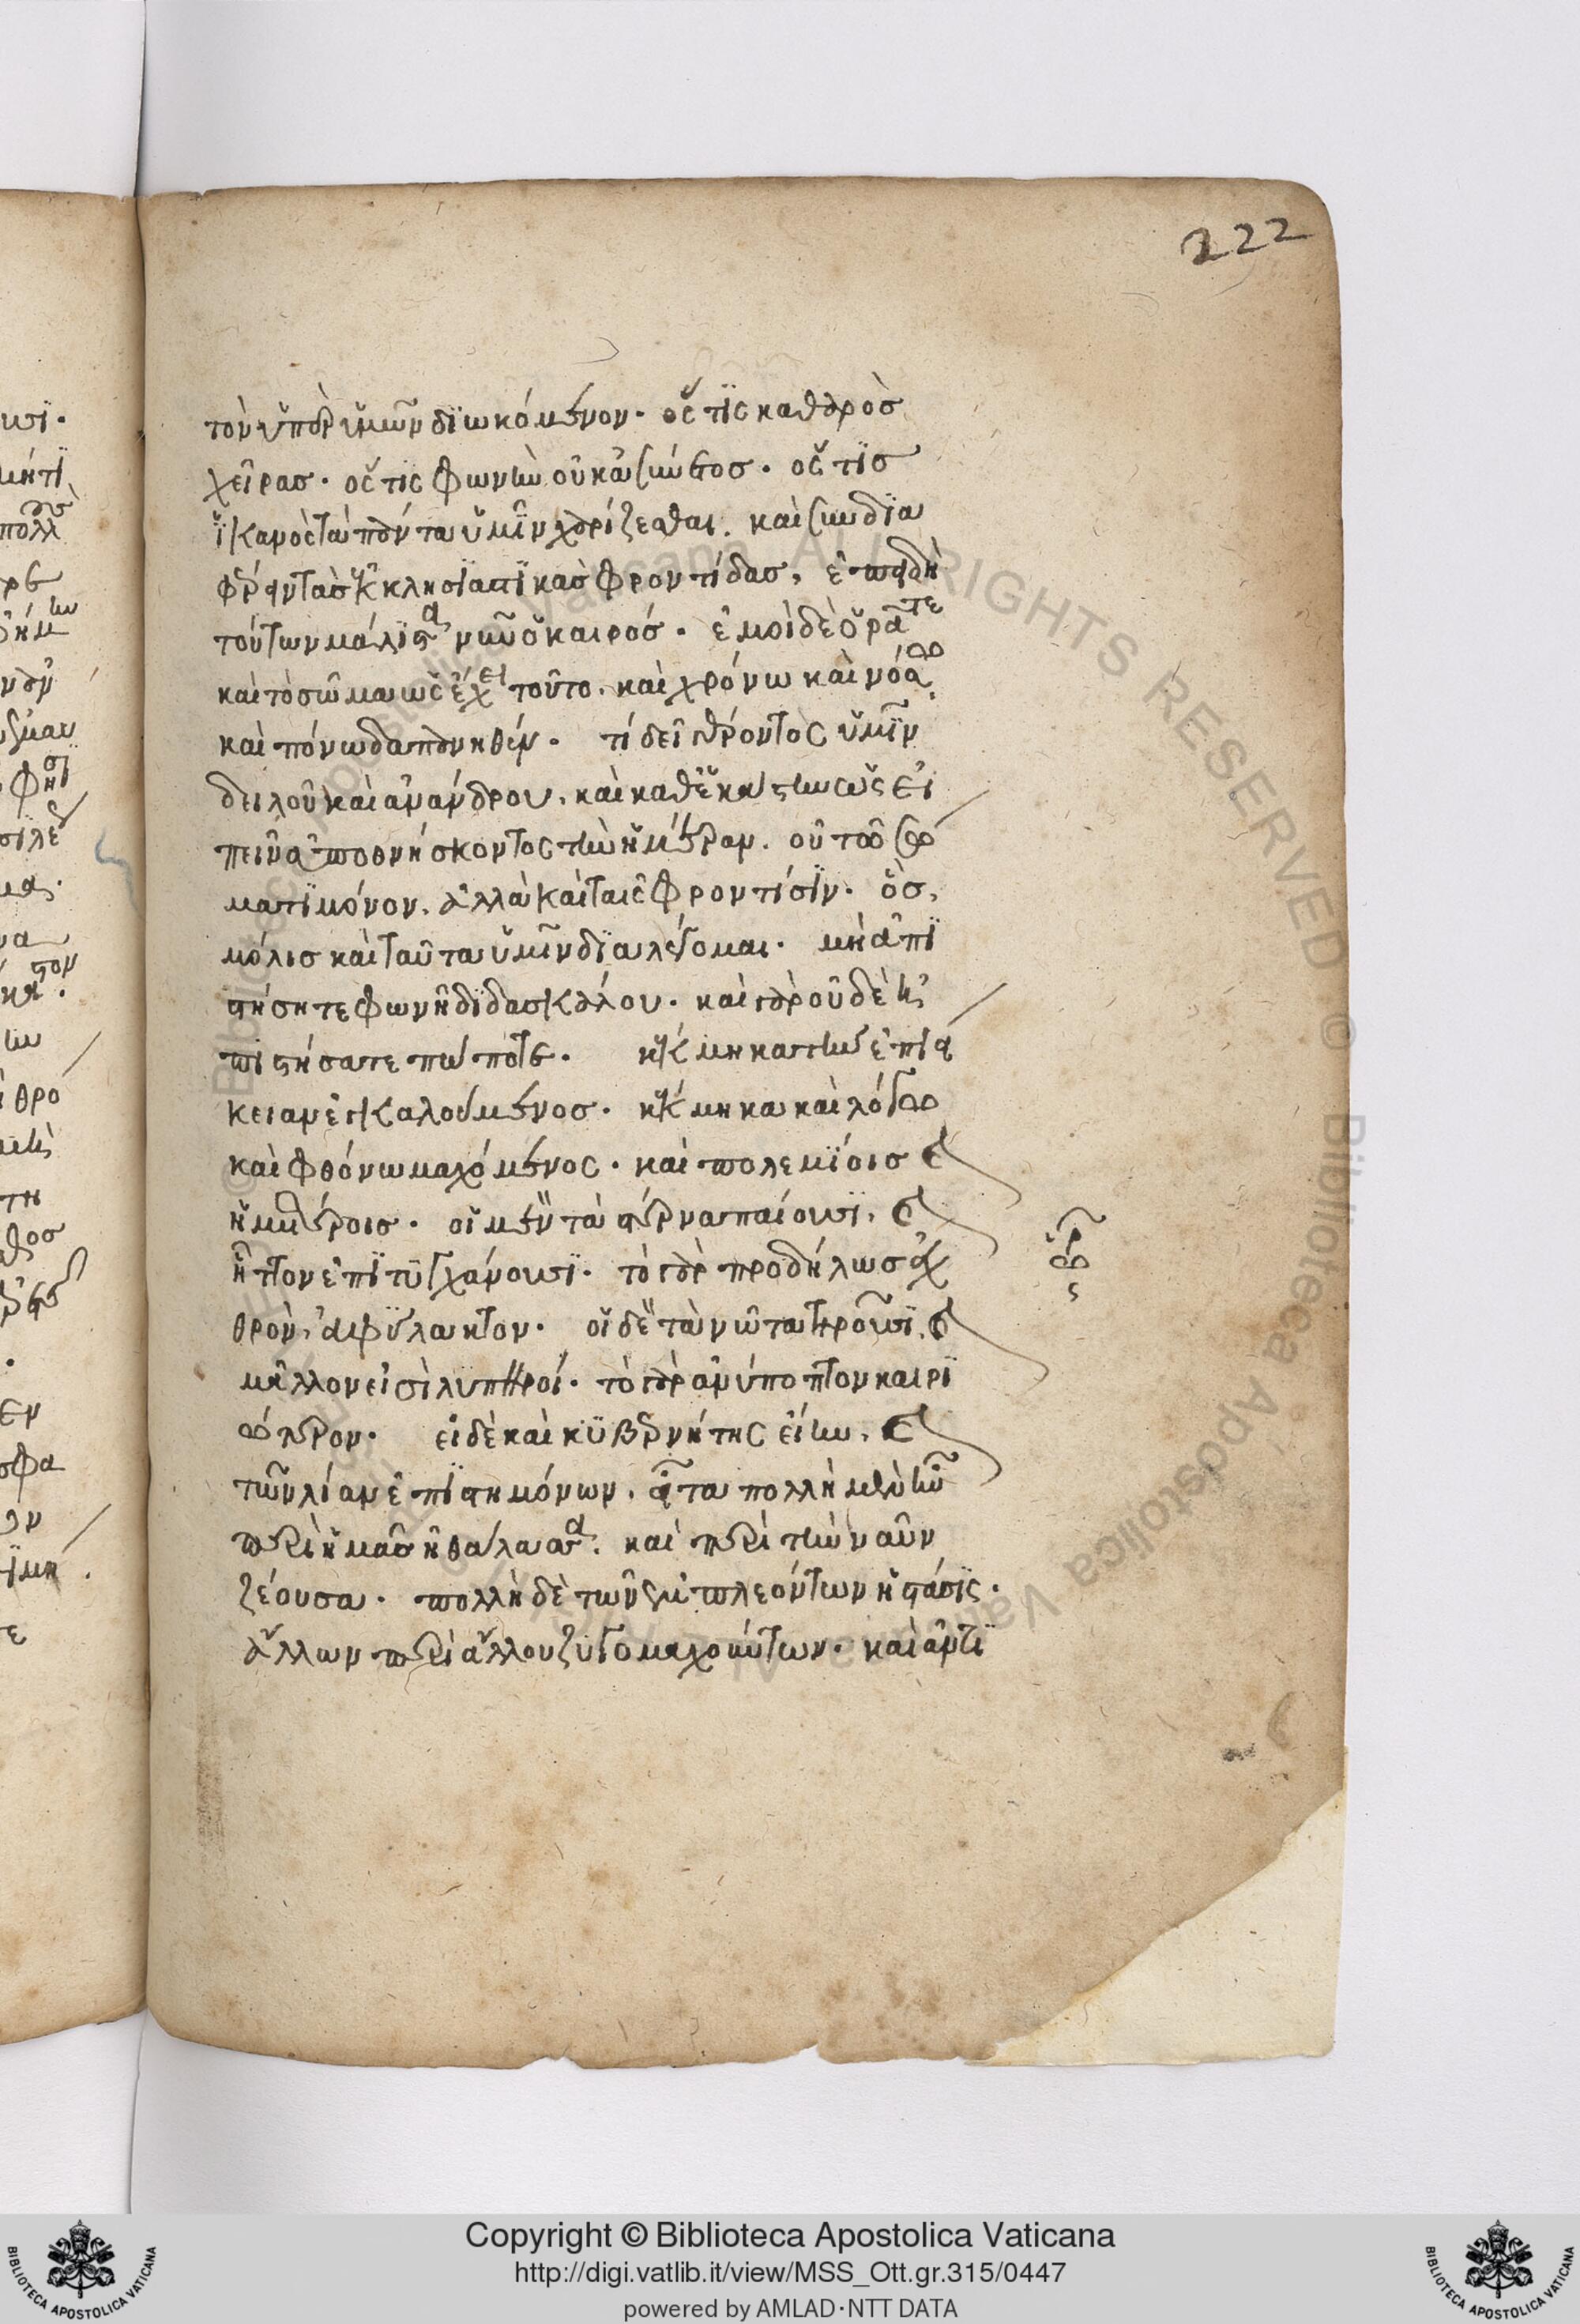 222
τὸν ὑπὲρ ὑμῶν διωκόμενον· ὅς τις καθαρὸσ
χεῖρασ· ὅς τις φωνὴν οὐκ ἀσύνετοσ· ὅς τισ
ἱκανὸς τὰ πάντα ὑμῖν χαρίζεσθαι. καὶ συνδια
φέρειν τὰσ ἐκκλησιαστικὰσ φροντίδασ, ἐπειδὴ
τούτων μάλιστα νῦν ὁ καιρόσ· ἐμοὶ δὲ ὁρᾶτε
καὶ τὸ σῶμα ὡς ἔχει τοῦτο. καὶ χρόνω καὶ νόσω
καὶ πόνω δαπανηθέν· τί δεῖ γέροντος ὑμῖν
δειλοῦ καὶ ἀνάνδρου. καὶ καθ ἑκάστην ὡς εἰ
πεῖν ἀποθνήσκοντος τὴν ἡμέραν. οὐ τῶ σώ
ματι μόνον. ἀλλὰ καὶ ταῖς φροντίσιν· ὃσ,
μόλισ καὶ ταῦτα ὑμῖν διαλέγομαι· μὴ ἀπι
στήσητε φωνῆ διδασκάλου· καὶ γὰρ οὐδὲ ἠ
πιστήσατε πώποτε· κέκμηκα τὴν ἐπιεί
κειαν ἐγκαλούμενοσ· κέκμηκα καὶ λόγω
καὶ φθόνω μαχόμενος· καὶ πολεμίοισ καὶ
ἡμετέροισ· οἱ μὲν τὰ στέρνα παίουσι, καὶ
ἧττον ἐπιτυγχάνουσι· τὸ γὰρ προδήλωσ ἐχ
θρὸν, ἀφύλακτον· οἱ δὲ τὰ νῶτα τηροῦσι, καὶ
μᾶλλον εἰσὶ λυπηροί· τὸ γὰρ ἀνύποπτον καιρι
ώτερον· εἰ δὲ καὶ κυβερνήτης εἴην, καὶ
τῶν λίαν ἐπιστημόνων, εἶτα πολλὴ μὲν ἦν
περὶ ἡμᾶσ ἡ θάλασσα. καὶ περὶ τὴν ναῦν
ζέουσα· πολλὴ δὲ τῶν ἐμπλεόντων ἡ στάσις·
ἄλλων περὶ ἄλλου ζυγομαχούντων· καὶ ἀντι
Copyright © Biblioteca Apostolica Vaticana
http://digi.vatlib.it/view/MSS_Ott.gr.315/0447
powered by AMLAD·NTT DATA
BIBLIOTECA APOSTOLICA VATICANA
BIBLIOTECA APOSTOLICA VATICANA